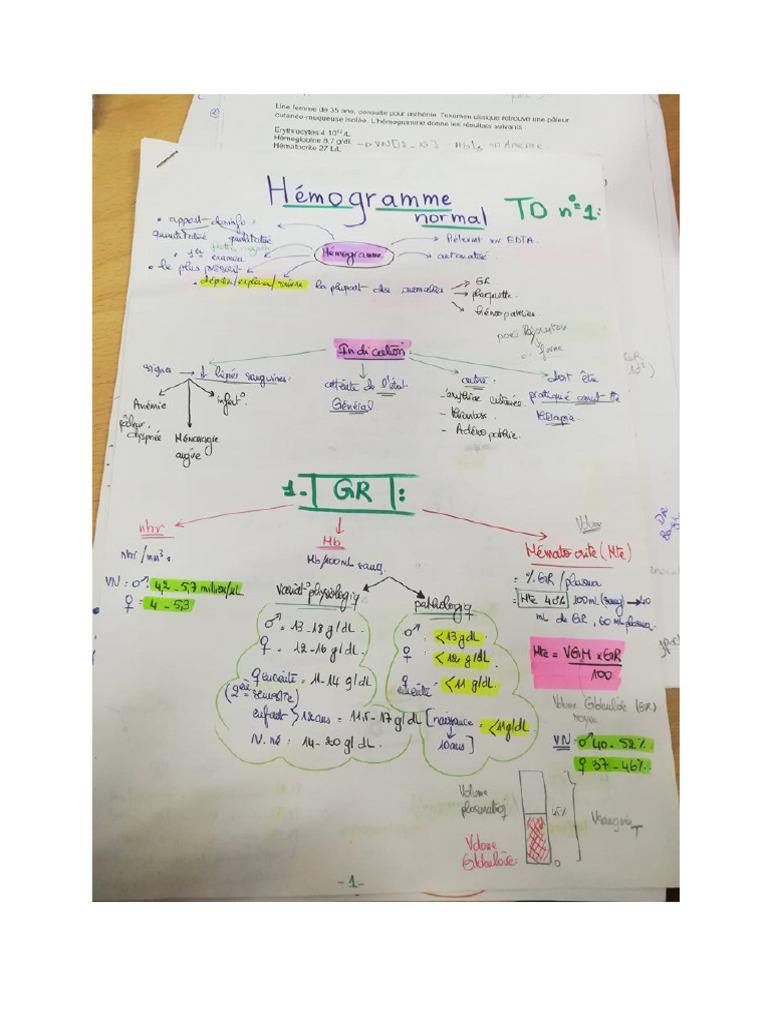 Une femme de 35 ans, consulte pour asthénie. l'examen clinique retrouve une pâleur
cutanéo-muqueuse isolée. L'hémogramme donne les résultats suivants :
Erythrocytes 4 10¹²/L
Hémoglobine 8,7 g/dL → VN [12 - 16]
Hématocrite 27 L/L
Hémogramme
normal
TD n°=1:
• apport d'info :
quantitative qualitative
• 1er examen
• le plus prescrit
Hémogramme
→ Prélevmt sur EDTA.
→ automatisé
• dépister/explorer/suivre la plupart des anomalies
→ GR
→ plaquette
→ hémopathies
Indication:
signes → ↓ lignées sanguines:
Anémie
pâleur,
dyspnée
Hémorragie
angine
infect°
atteinte de l'état
Général
autre:
- érythrose cutanée
- thrombose
- Adénopathie
doit être
pratiqué avant tte
thérapie
1- GR :
nbr
nbr/mm³ =
VN = ♂ 4,2 - 5,7 million/µL
♀ 4 - 5,3
Hb
Hb/100mL sang
Variat° physiologiq
♂ = 13 - 18 g/dL.
♀ = 12 - 16 g/dL.
♀ enceinte = 11 - 14 g/dL
enfant > 12 ans = 11,5 - 17 g/dL [naissance = <11g/dL
10 ans]
N. né : 14 - 20 g/dL.
pathologiq
♂ : <13 g/dL
♀ : <12 g/dL.
♀ enceinte : <11 g/dL.
Volume
Hématocrite (Hte)
= % GR / plasma
= Hte 40% 100 mL (sang) → 40
mL de GR, 60 mL plasma.
Hte = VGM x GR
100
Volume Globulaire (GR)
moyen
VN : ♂ 40 - 52%
♀ 37 - 46%
Volume
plasmatiq
45%
Volume
Globulaire:
0
- 1 -